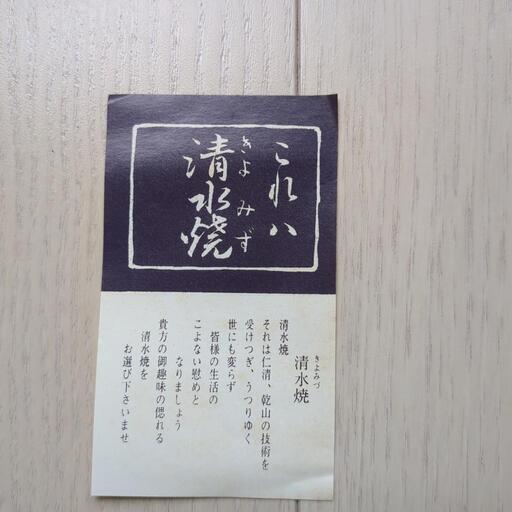 これハ
きよみず
清水燒
きよみづ
清水焼
清水焼
それは仁清、乾山の技術を
受けつぎ、うつりゆく
世にも変らず
皆様の生活の
こよない慰めと
なりましょう
貴方の御趣味の偲れる
清水焼を
お選び下さいませ